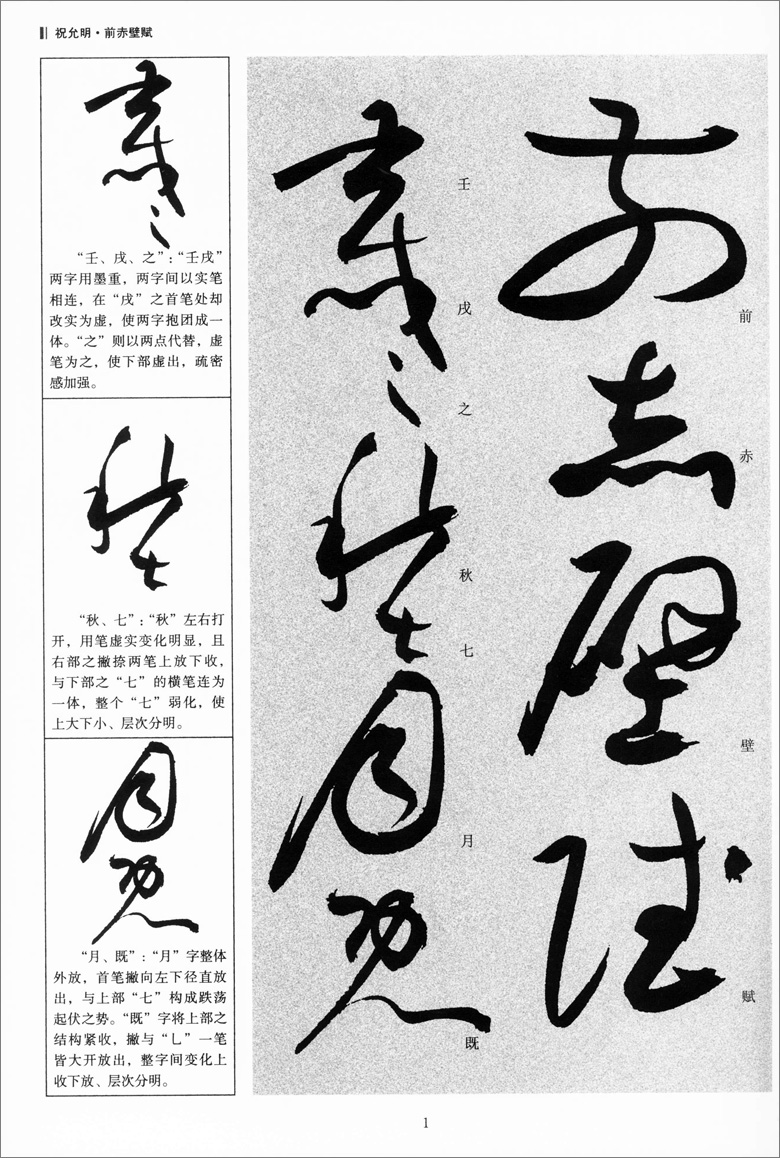 祝允明·前赤壁赋
“壬、戌、之”：“壬戌”
两字用墨重，两字间以实笔
相连，在“戌”之首笔处却
改实为虚，使两字抱团成一
体。“之”则以两点代替，虚
笔为之，使下部虚出，疏密
感加强。
“秋、七”：“秋”左右打
开，用笔虚实变化明显，且
右部之撇捺两笔上放下收，
与下部之“七”的横笔连为
一体，整个“七”弱化，使
上大下小、层次分明。
“月、既”：“月”字整体
外放，首笔撇向左下径直放
出，与上部“七”构成跌荡
起伏之势。“既”字将上部之
结构紧收，撇与“乚”一笔
皆大开放出，整字间变化上
收下放、层次分明。
前赤壁赋
前
赤
壁
赋
壬戌之秋七月既
壬
戌
之
秋
七
月
既
1